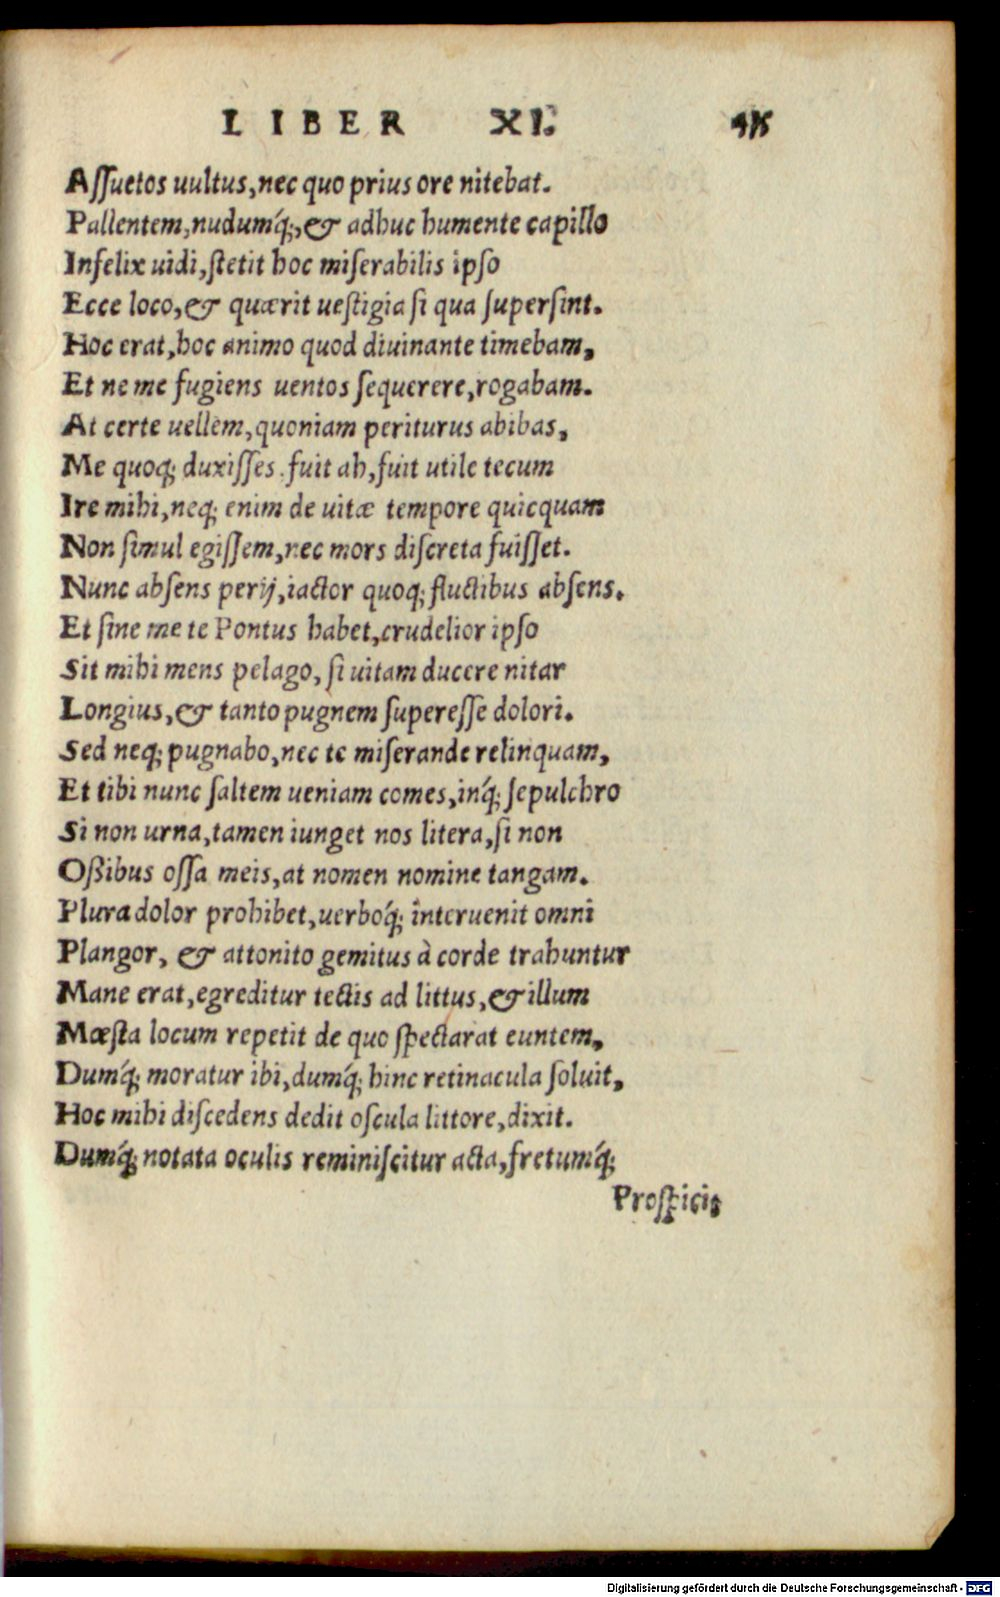 LIBER XI.
Aſſuetos uultus, nec quo prius ore nitebat.
Pallentem, nudumq́;, & adhuc humente capillo
Infelix uidi, ſtetit hoc miſerabilis ipſo
Ecce loco, & quærit ueſtigia ſi qua ſuperſint.
Hoc erat, hoc animo quod diuinante timebam,
Et ne me fugiens uentos ſequerere, rogabam.
At certe uellem, quoniam periturus abibas,
Me quoq; duxiſſes. fuit ah, fuit utile tecum
Ire mihi, neq; enim de uitæ tempore quicquam
Non ſimul egiſſem, nec mors diſcreta fuiſſet.
Nunc abſens perij, iactor quoq; fluctibus abſens.
Et ſine me te Pontus habet, crudelior ipſo
Sit mihi mens pelago, ſi uitam ducere nitar
Longius, & tanto pugnem ſupereſſe dolori.
Sed neq; pugnabo, nec te miſerande relinquam,
Et tibi nunc ſaltem ueniam comes, inq́; ſepulchro
Si non urna, tamen iunget nos litera, ſi non
Oßibus oſſa meis, at nomen nomine tangam.
Plura dolor prohibet, uerboq́; interuenit omni
Plangor, & attonito gemitus à corde trahuntur
Mane erat, egreditur tectis ad littus, & illum
Mœſta locum repetit de quo ſpectarat euntem,
Dumq́; moratur ibi, dumq́; hinc retinacula ſoluit,
Hoc mihi diſcedens dedit oſcula littore, dixit.
Dumq́; notata oculis reminiſcitur acta, fretumq́;
Proſpicit
Digitalisierung gefördert durch die Deutsche Forschungsgemeinschaft - DFG